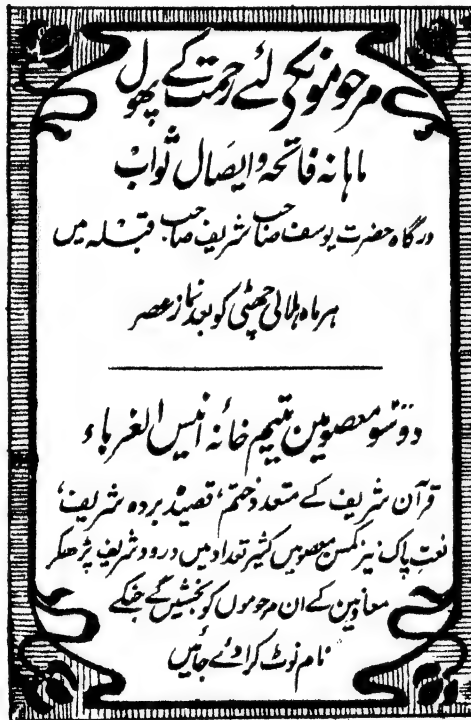 مرحومونکے لئے رحمت کے پھول
ماہانہ فاتحہ و ایصال ثواب
درگاہ حضرت یوسف صاحب شریف صاحب قبلہ میں
ہر ماہ ہلالی چھٹی کو بعد نماز عصر
دو سو معصومین یتیم خانہ انیس الغرباء
قرآن شریف کے متعدد ختم، قصیدہ بردہ شریف،
نعت پاک نیز کمسن معصومین کثیر تعداد میں درود شریف پڑھکر
معاونین کے ان مرحوموں کو بخشیں گے جنکے
نام نوٹ کرا دئے جائیں